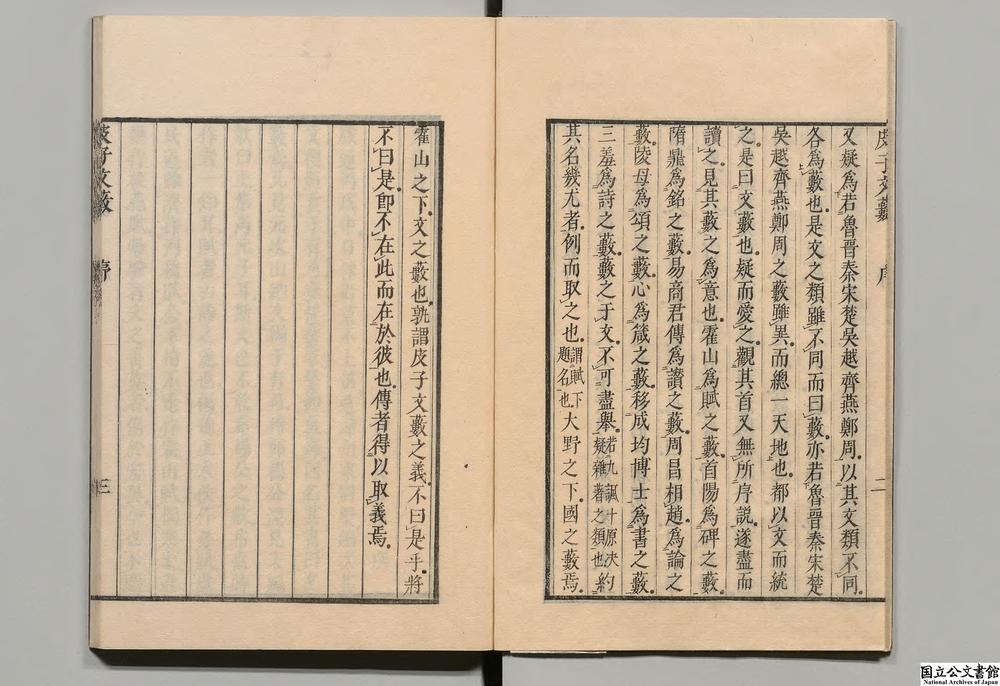 皮子文藪 序 二
又疑爲若魯晋秦宋楚吳越齊燕鄭周以其文類不同
各爲藪也是文之類雖不同而曰藪亦若魯晋秦宋楚
吳越齊燕鄭周之藪雖異而總一天地也都以文而統
之是曰文藪也疑而愛之觀其首又無所序説遂盡而
讀之見其藪之爲意也霍山爲賦之藪首陽爲碑之藪
隋鼎爲銘之藪易商君傳爲讃之藪周昌相趙爲論之
藪陵母爲頌之藪心爲箴之藪移成均博士爲書之藪
三羞爲詩之藪藪之于文不可盡舉若九諷十原决疑雜著之類也約
其名幾尤者例而取之也謂賦下題名也大野之下國之藪焉
霍山之下文之藪也孰謂皮子文藪之義不曰是乎將
不曰是卽不在此而在於彼也傳者得以取義焉
皮子文藪 序 三
国立公文書館
National Archives of Japan